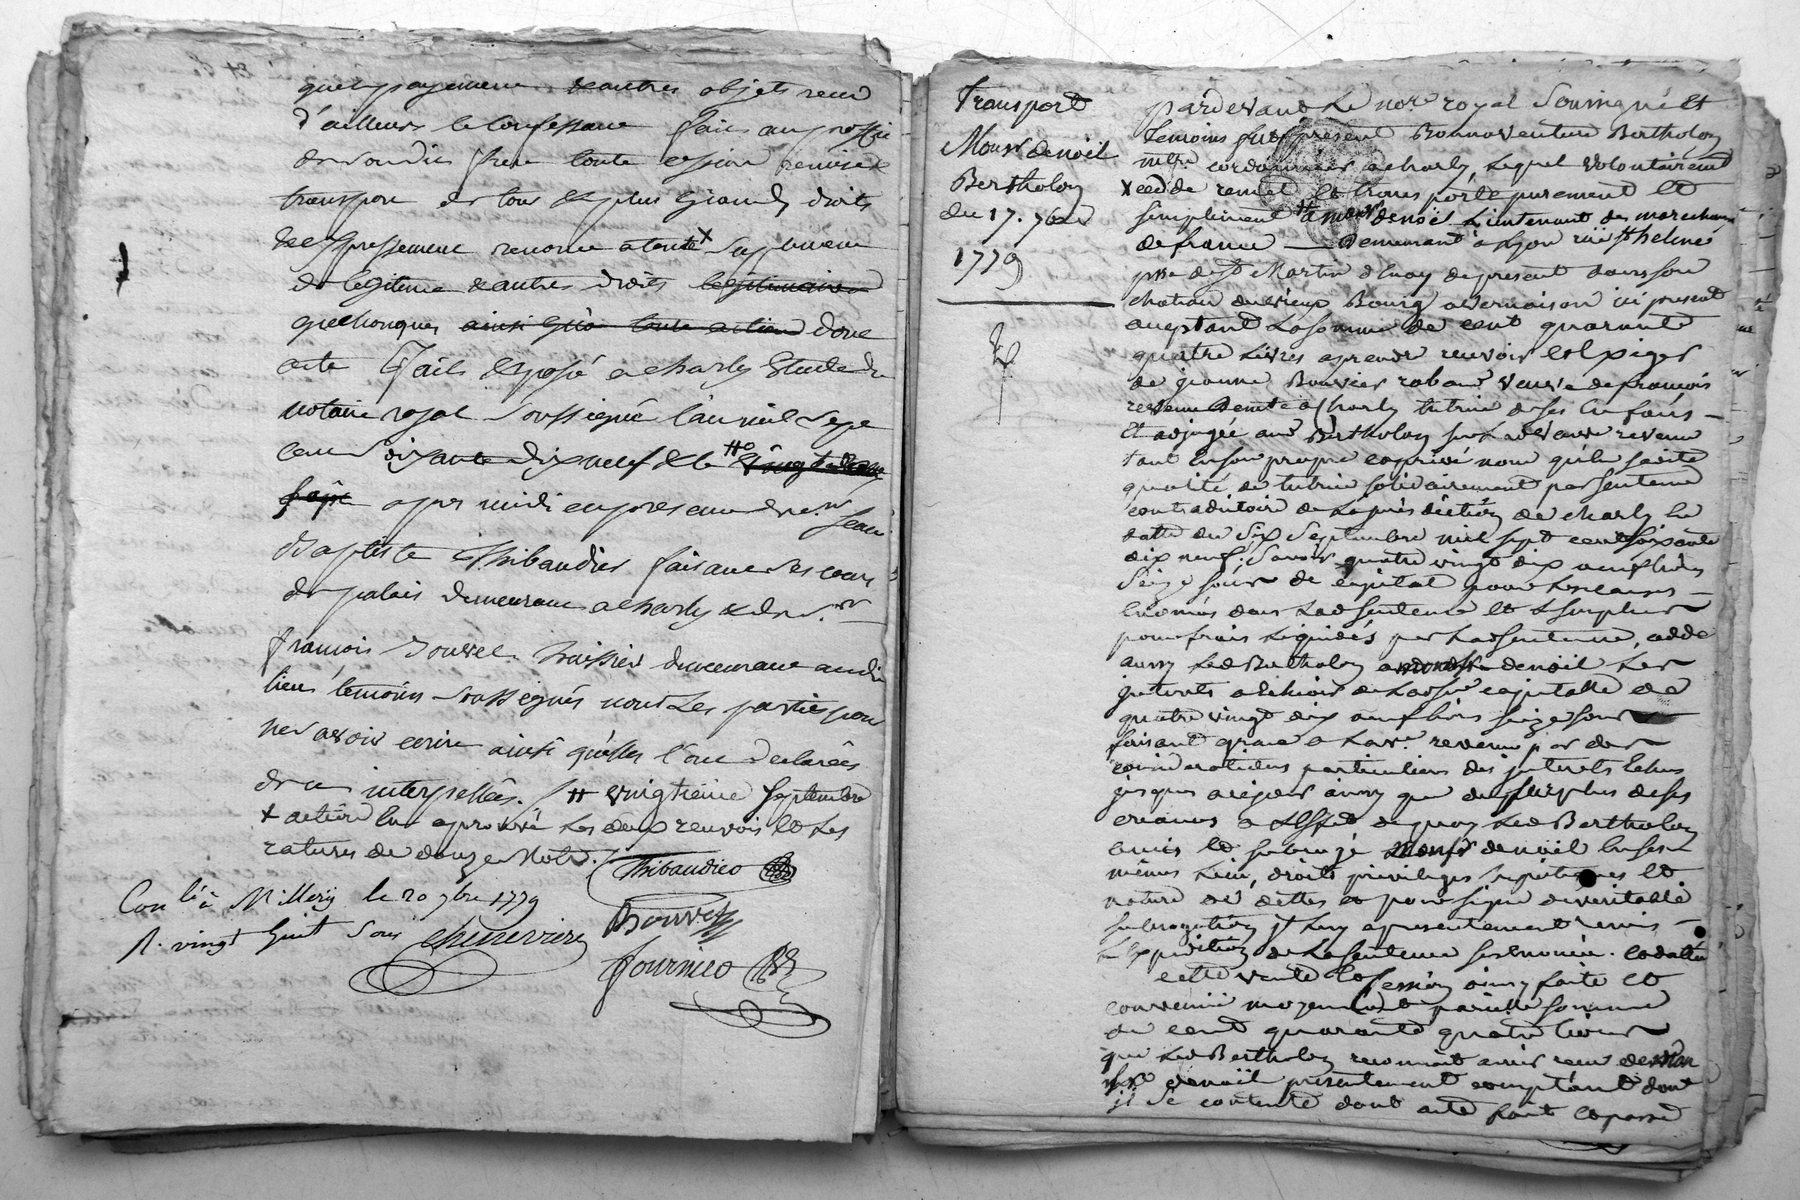 quel payement & autres objets recu
d'ailleurs le Confessant faire au proffit
de son dit frere toute cession remise &
transport de tous les plus Grands droits
& Expressement renonce a toute x supplement
de legitime & autres droits legitimaires
quelconques ainsi qu'a toute action dont
acte fait & passé a charly Etude du
notaire royal soussigné l'an mil sept
cent soixante dix neuf & le # vingt
apres midi en presence de sr jean
Baptiste Thibaudier faisant les cours
de palais demeurant a charly & de sr
francois Bouvet huissier demeurant audit
lieu temoins soussignés non les parties pour
ne savoir ecrire ainsi qu'elles l'ont declarées
de ce interpellées. # vingtieme septembre
x acturé lu approuvé les deux renvois et les
ratures de douze mots.
Thibaudier
Con lé à Millery le 20 7bre 1779
R. vingt huit sous Chenevier
Bouvet
fournier
Transport
Monsr denoël
Bertholon
du 17. 7bre
1779
Pardevant le nore royal soussigné et
temoins fut present Bonnaventure Bertholon
mtre cordonnier a charly, lequel volontairement
x cedde remet et transporte purement et
simplement a monsr denoël Lieutenant des marechaux
de france demeurant a Lyon rüe ste helene
psse de st Martin d'Enay de present dans son
chateau du vieux Bourg a vernaison ici present
acceptant la somme de cent quarante
quatre livres a prendre recevoir et exiger
de jeanne Bouvier veuve de francois
revenu demte a charly tutrice de ses Enfans
et adjugée aud Bertholon sur lad veuve revenu
tant En son propre et privé nom qu'en sadite
qualité de tutrice solidairement par sentence
contradictoire de la jurisdiction de charly En
datte du six septembre mil sept cent soixante
dix neuf; savoir quatre vingt dix neuf livres
seize sous de capital pour les causes
Enoncés dans lad sentence et le surplus
pour frais liquidés par lad sentence, cedde
aussy led Bertholon a monsr denoël les
interets a Echoir de lad sme capitalle de
quatre vingt dix neuf livres seize sous
faisant grace a la ve revenu par des
considerations particulieres des interets Echus
jusques a ce jour ainsy que du surplus de ses
creances a l'Effet de quoy led Bertholon
a mis et subrogé Monsr denoël En ses
mêmes Lieu, droits privileges hipoteques et
nature de dettes et pour signe de veritable
subrogation il luy a presentement remis
l'Expedition de la sentence sus Enoncée et dattée
cette vente et Cession ainsy faite et
convenüe moyennant pareille somme
de cent quarante quatre livres
que led Bertholon reconnoit avoir reçu de mon
sr denoël presentement comptant dont
il se contente dont acte fait et passé